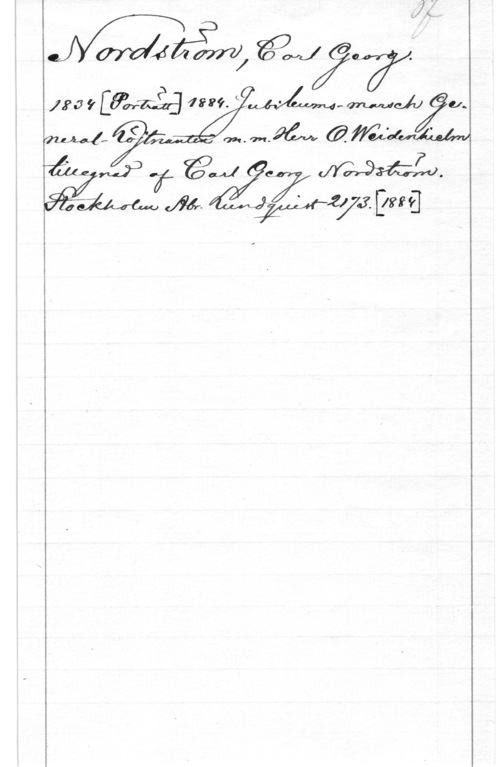 Nordström, Carl Georg.
1834 [Porträtt] 1884. Jubileums-marsch Ge-
neral-Löjtnanten m. m. Herr O. Weidenhielm
tillegnad af Carl Georg Nordström.
Stockholm Abr. Lundquist 2173. [1884]